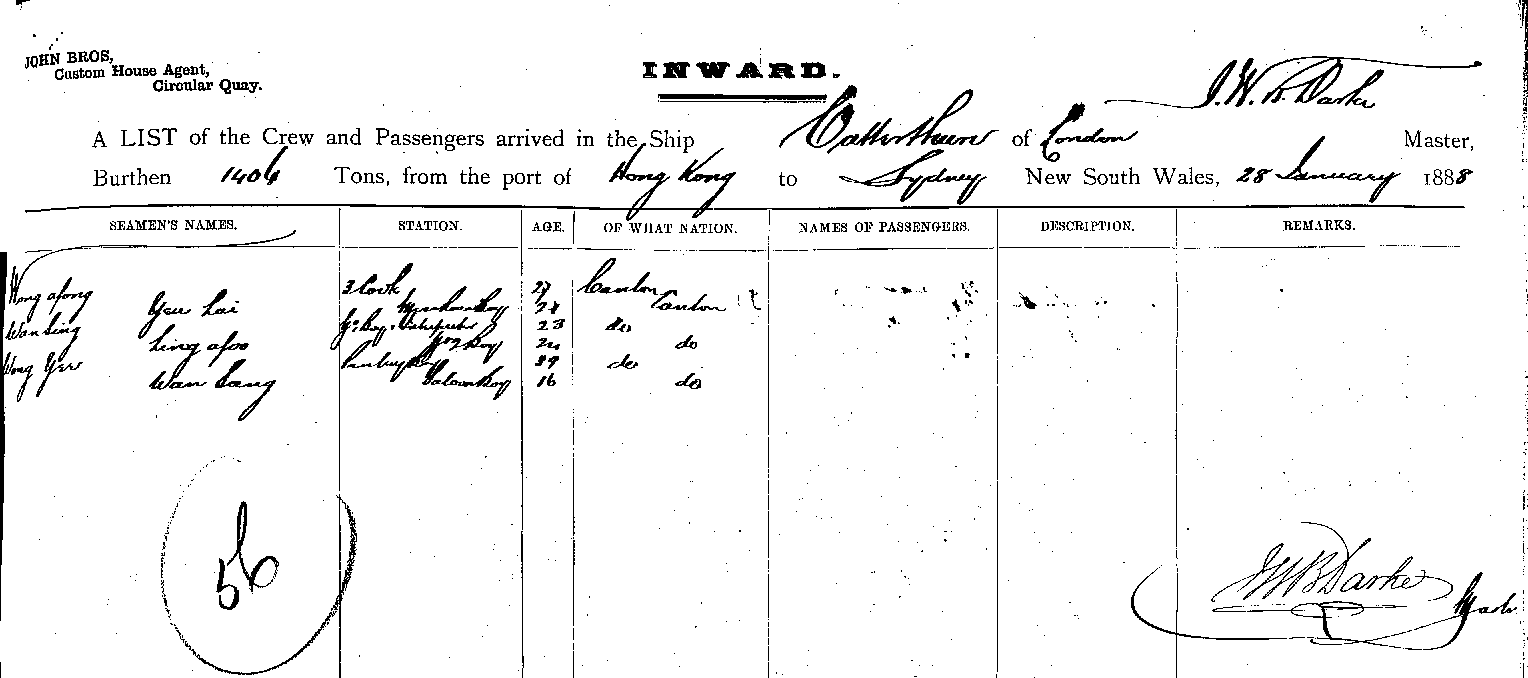 JOHN BROS,
Custom House Agent,
Circular Quay.
INWARD.
J. W. B. Darke
A LIST of the Crew and Passengers arrived in the Ship Catterthun of London Master,
Burthen 1406 Tons, from the port of Hong Kong to Sydney New South Wales, 28 January 1888
SEAMEN'S NAMES. STATION. AGE. OF WHAT NATION. NAMES OF PASSENGERS. DESCRIPTION. REMARKS.
Hong afong 3 Cook Canton
Yeu Lai Messroom Boy 21 Canton
Wan Sing 23 do
Ling afoo Boy do
Wong Yee Pantry Boy 39 do
Wan Sang Saloon Boy 16 do
56
JWB Darke